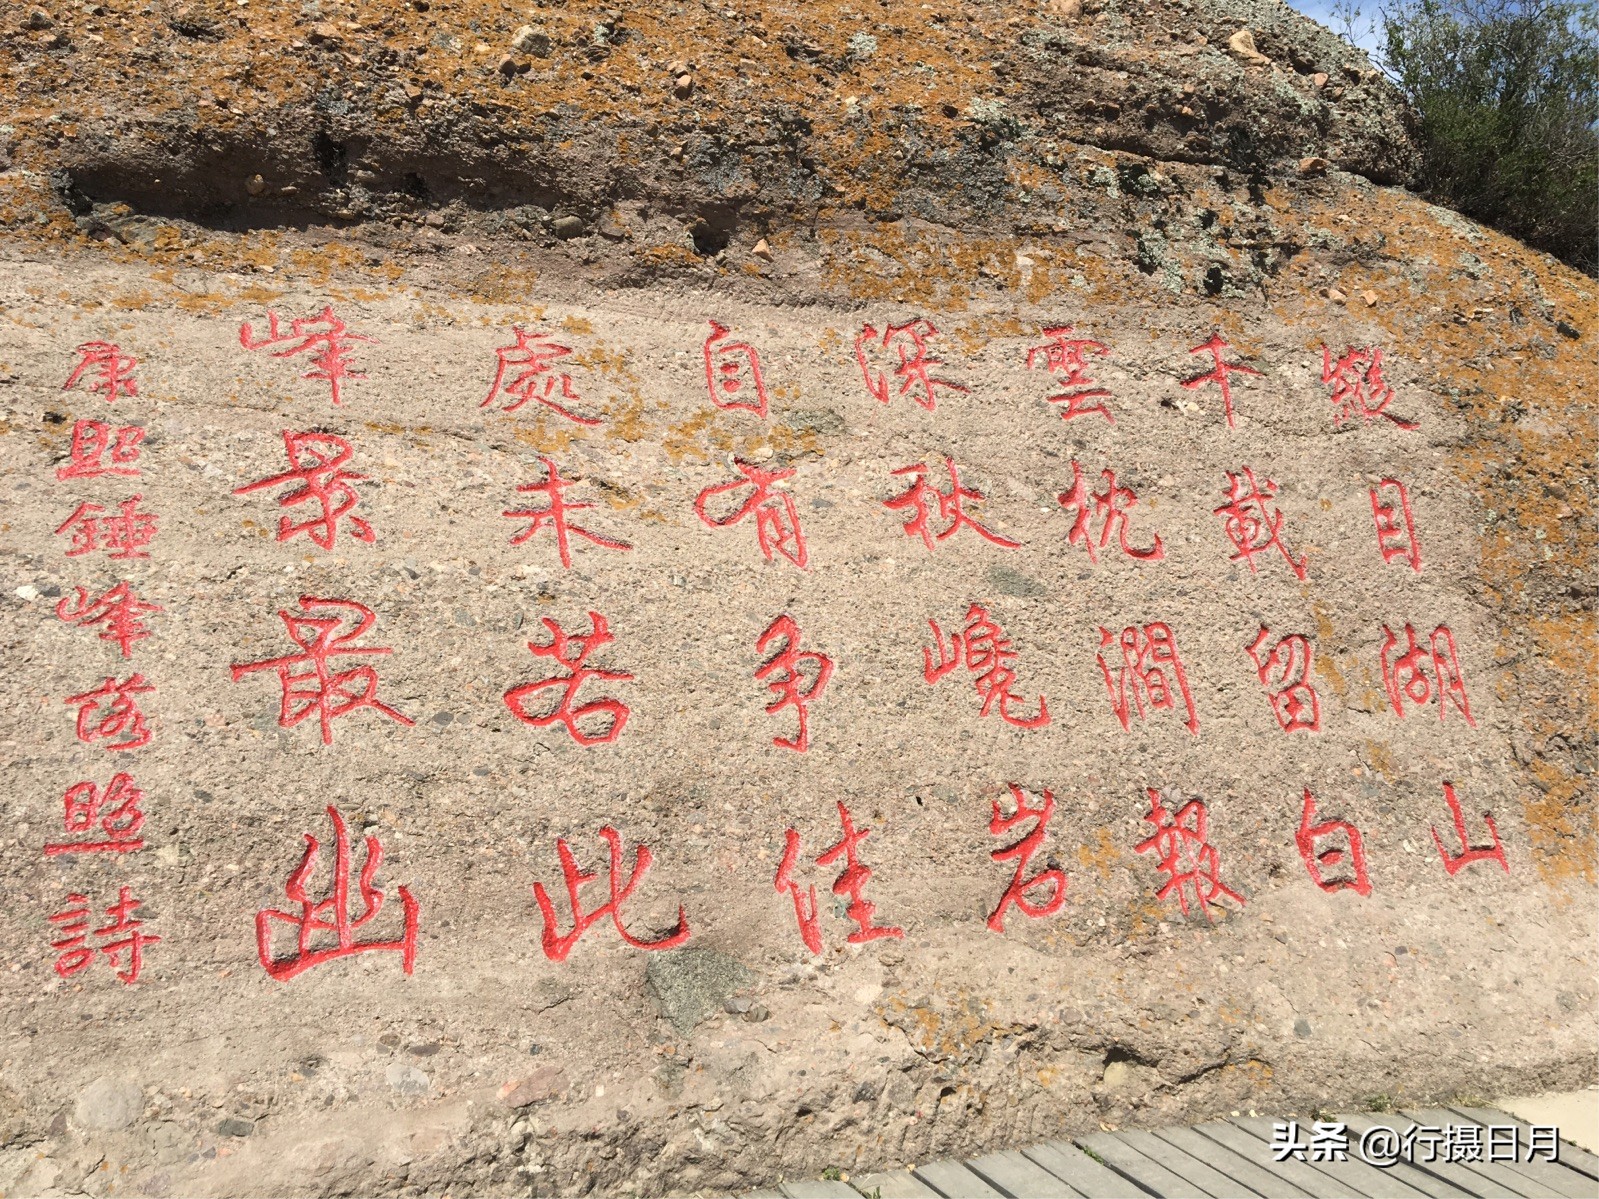 縱目湖山
千載留白
雲枕澗報
深秋巉岩
自有争佳
處未若此
峰景最幽
康熙錘峰落照詩
头条 @行摄日月